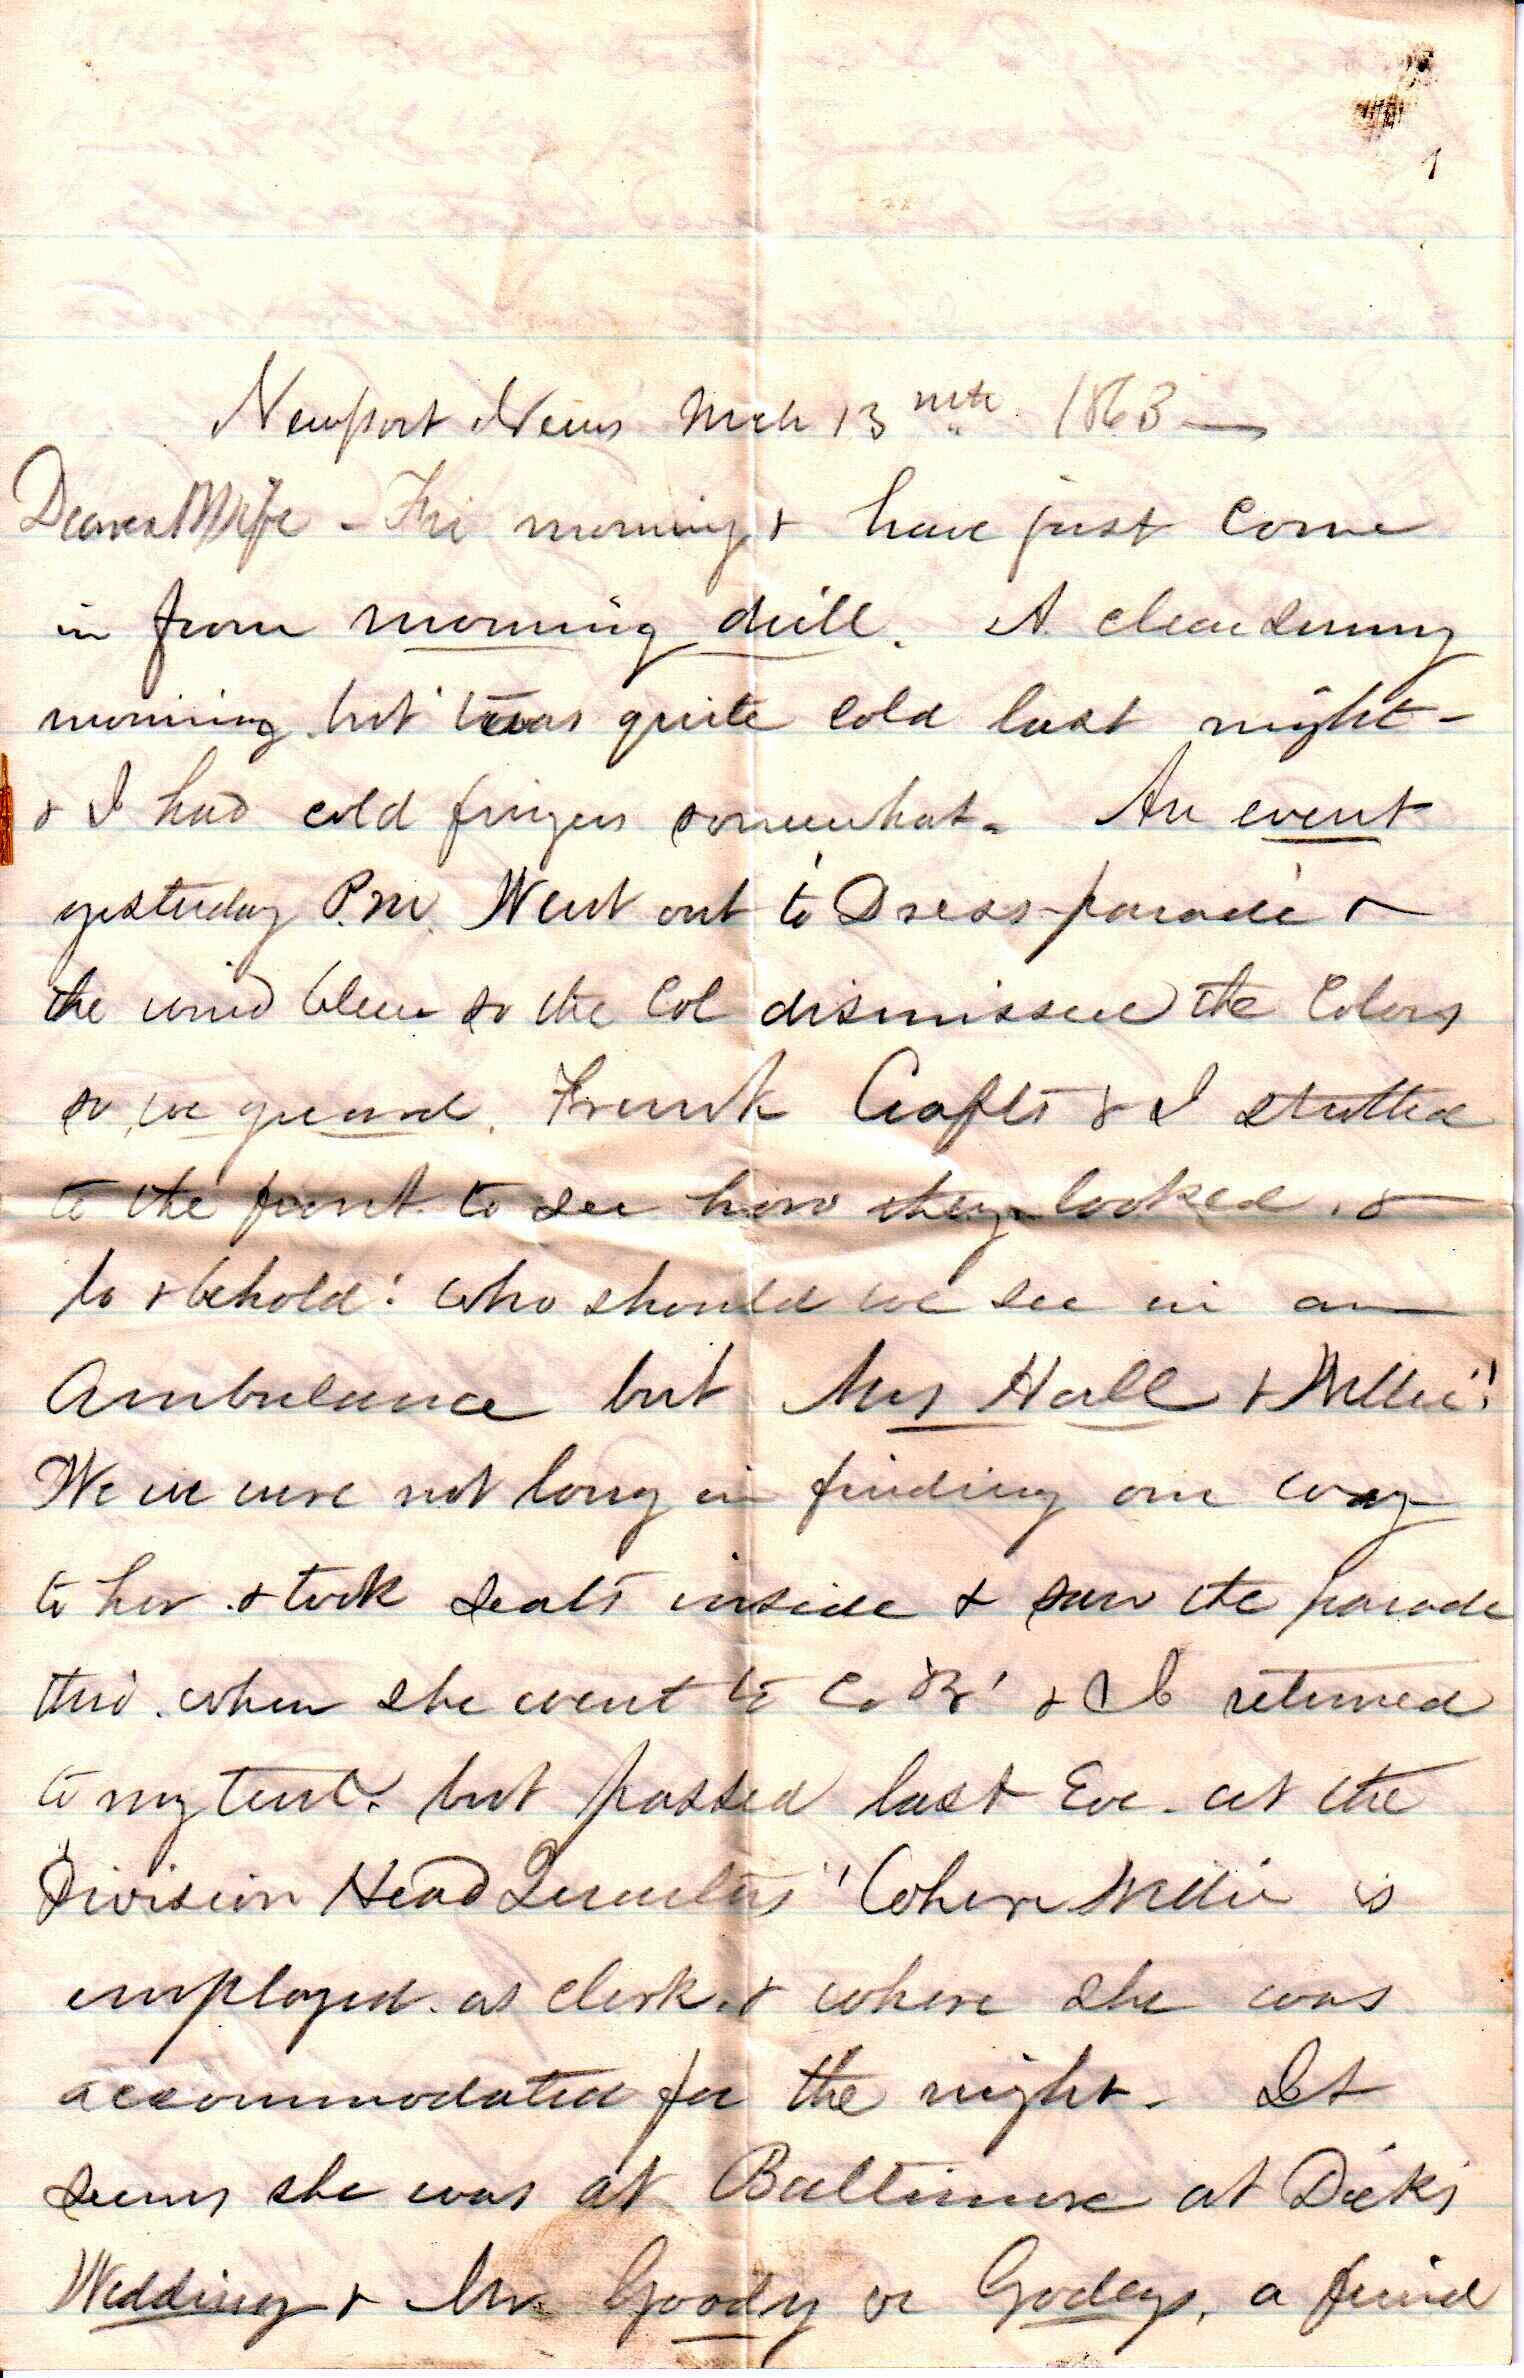 1
Newport News Mch 13th 1863 —
Dearest Wife - Fri morning & have just come
in from morning drill. A clear sunny
morning but twas quite cold last night -
& I had cold fingers somewhat. An event
yesterday P.M. Went out to Dress-parade &
the wind blew so the Col dismissed the Colors
so, we guard. Frank Crafts & I strutted
to the front to see how they looked, &
lo & behold! who should we see in an
Ambulance but Mrs Hall & Willie!
We we were not long in finding our way
to her & took seats inside & saw the parade
thro'. when she went to Co 'B' & I returned
to my tent. but passed last Eve. at the
Division Head Quarters' where Willie is
employed as clerk. & where she was
accommodated for the night. It
seems she was at Baltimore at Dick's
Wedding & Mr. Goody or Godey, a friend